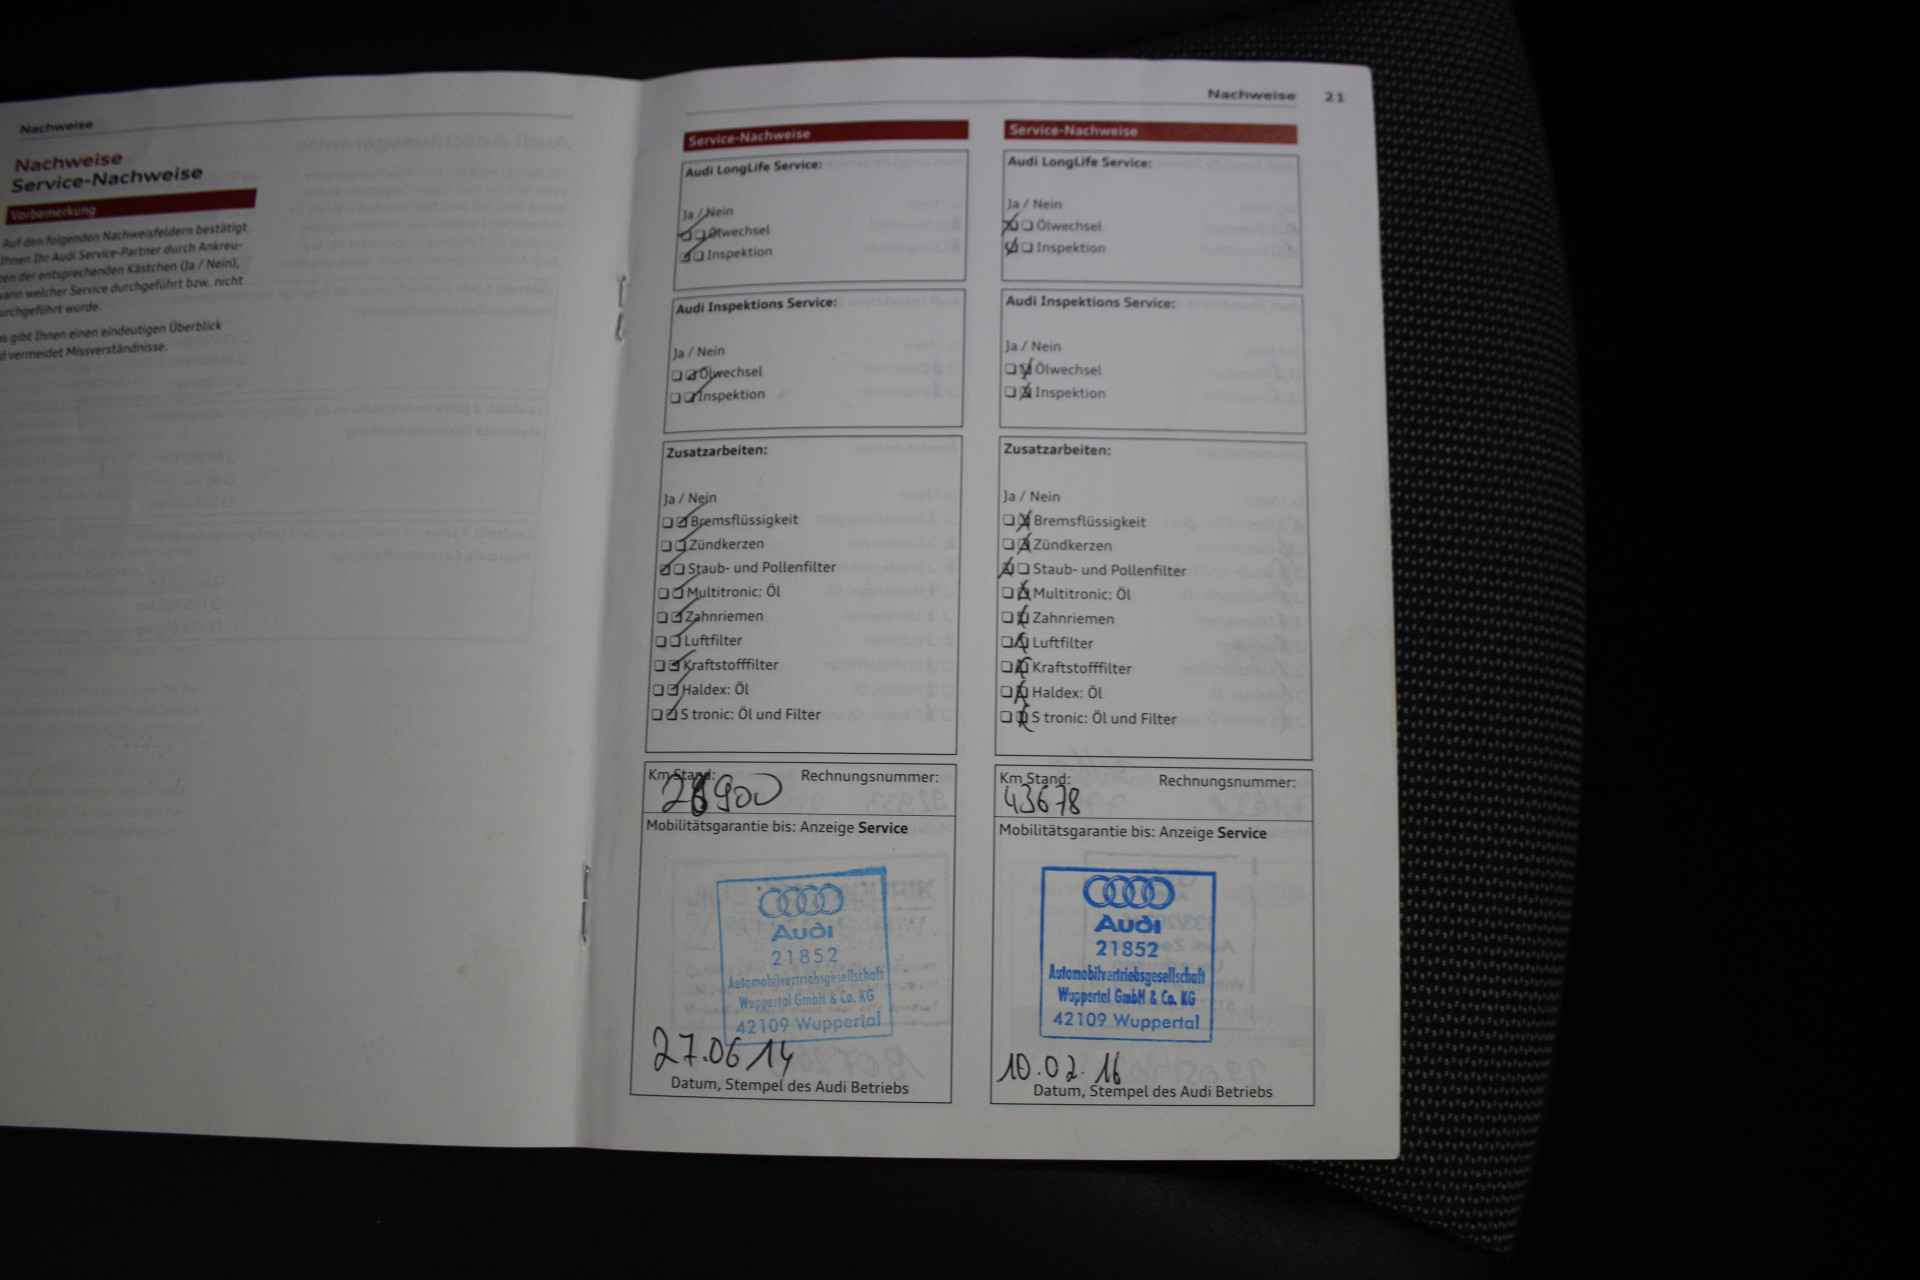 Nachweise
Nachweise
Service-Nachweise
Vorbemerkung
Auf den folgenden Nachweisfeldern bestätigt
Ihnen Ihr Audi Service-Partner durch Ankreu-
zen der entsprechenden Kästchen (Ja / Nein),
wann welcher Service durchgeführt bzw. nicht
durchgeführt wurde.
gibt Ihnen einen eindeutigen Überblick
vermeidet Missverständnisse.
Nachweise 21
Service-Nachweise
Audi LongLife Service:
Ja / Nein
Ölwechsel
Inspektion
Audi Inspektions Service:
Ja / Nein
Ölwechsel
Inspektion
Zusatzarbeiten:
Ja / Nein
Bremsflüssigkeit
Zündkerzen
Staub- und Pollenfilter
Multitronic: Öl
Zahnriemen
Luftfilter
Kraftstofffilter
Haldex: Öl
S tronic: Öl und Filter
Km Stand: Rechnungsnummer:
Mobilitätsgarantie bis: Anzeige Service
Audi
21852
Automobilvertriebsgesellschaft
Wuppertal GmbH & Co. KG
42109 Wuppertal
27.06 14
Datum, Stempel des Audi Betriebs
Service-Nachweise
Audi LongLife Service:
Ja / Nein
Ölwechsel
Inspektion
Audi Inspektions Service:
Ja / Nein
Ölwechsel
Inspektion
Zusatzarbeiten:
Ja / Nein
Bremsflüssigkeit
Zündkerzen
Staub- und Pollenfilter
Multitronic: Öl
Zahnriemen
Luftfilter
Kraftstofffilter
Haldex: Öl
S tronic: Öl und Filter
Km Stand: Rechnungsnummer:
43678
Mobilitätsgarantie bis: Anzeige Service
Audi
21852
Automobilvertriebsgesellschaft
Wuppertal GmbH & Co. KG
42109 Wuppertal
10.02.16
Datum, Stempel des Audi Betriebs